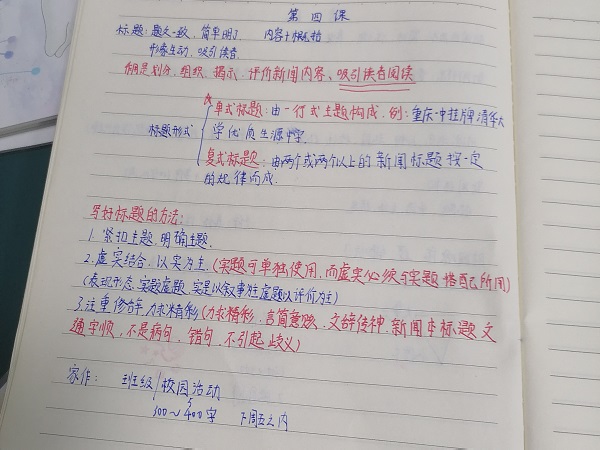 第四课
标题:题文一致,简单明了 内容+概括
形象生动,吸引读者
用是划分、组织、揭示、评价新闻内容、吸引读者阅读
单式标题:由一行式主题构成.例:重庆一中挂牌清华大
标题形式
学优质生源中学.
复式标题:由两个或两个以上的新闻标题按一定
的规律而成.
写好标题的方法:
1.紧扣主题,明确主题.
2.虚实结合,以实为主.(实题可单独使用,而虚实必须与实题搭配所用)
(表现形态,实题虚题,实是以叙事性虚题以评价为主)
3.注重修辞,力求精彩(力求精彩,言简意赅,文辞传神,新闻本标题文
通字顺,不是病句,错句,不引起歧义)
家作: 班级/校园活动
300~400字 下周五之内